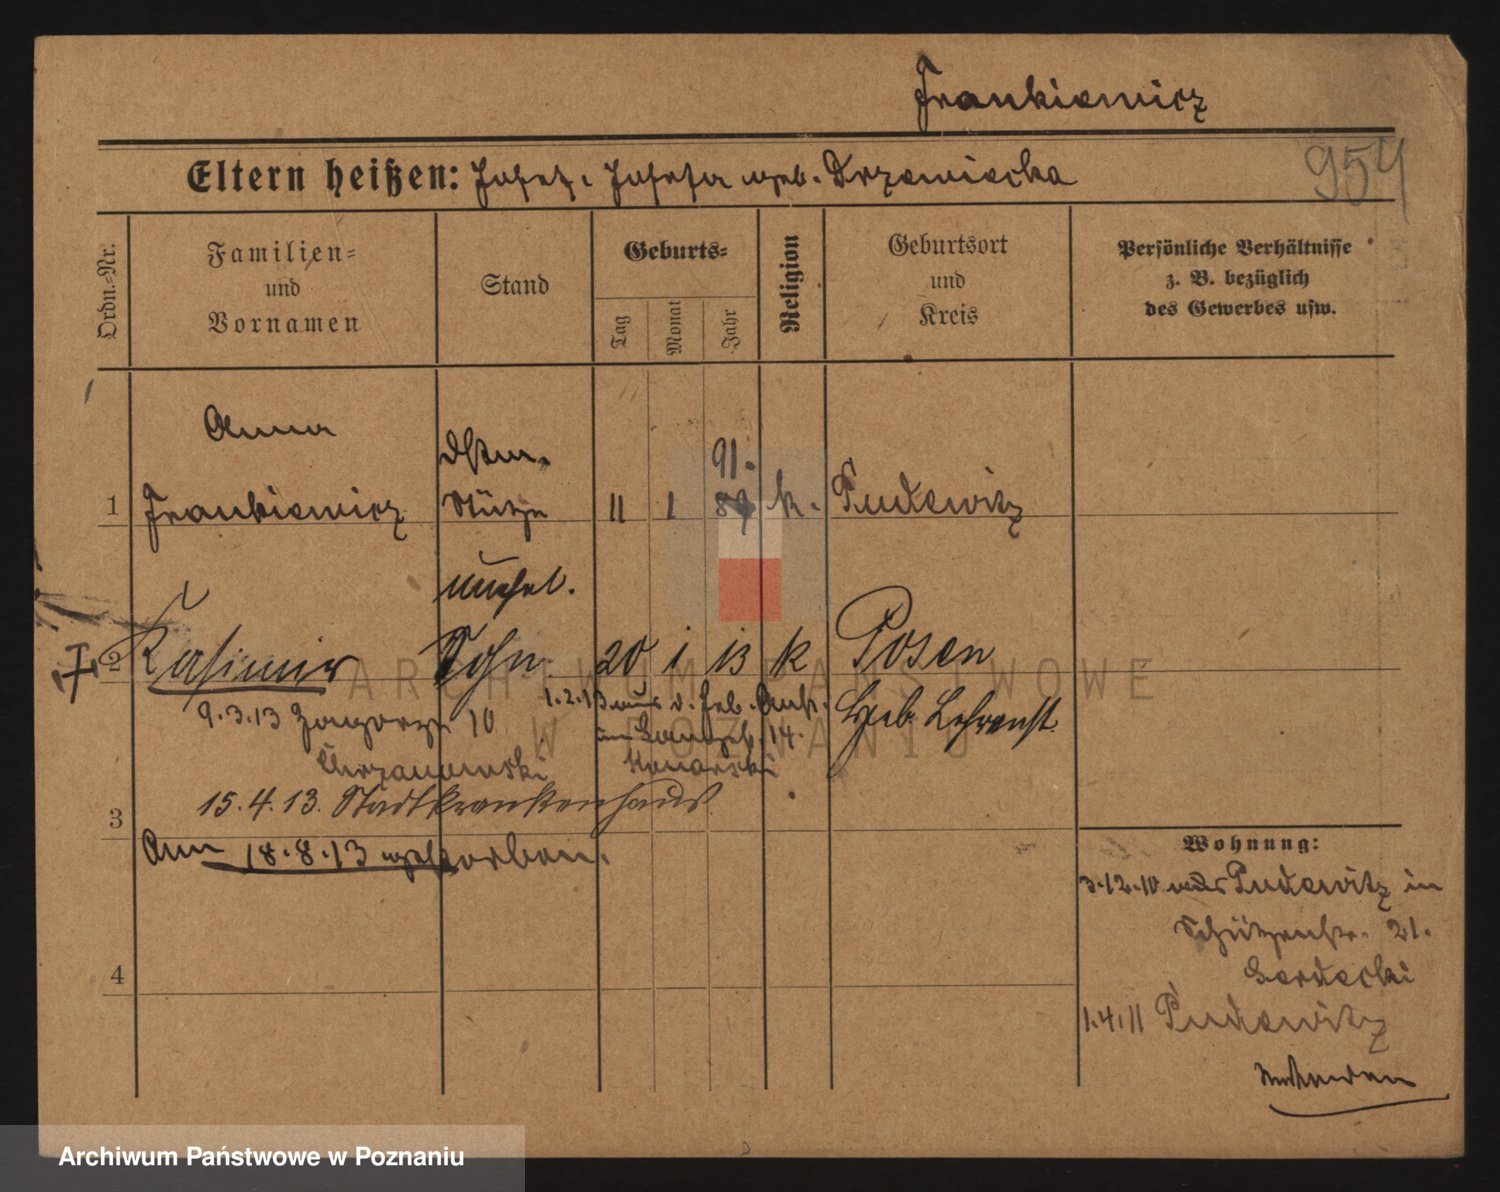 Frankiewicz
954
Eltern heißen: Josef. Josefa geb. Drzewiecka
Ordn.-Nr.
Familien-
und
Vornamen
Stand
Geburts-
Tag
Monat
Jahr
Religion
Geburtsort
und
Kreis
Persönliche Verhältnisse
z. B. bezüglich
des Gewerbes usw.
Anna
91.
1 Frankiewicz Stütze 11 1 89 k. Pudewitz
unehel.
2 Kasimir Sohn 20 1 13 k Posen
1.2.13 aus d. Heb. Anst. Heb. Lehranst.
9.3.13 Zagorze 10
Chrzanowski
14.
Konarski
15.4.13. Stadtkrankenhaus
3
Am 18.8.13 gestorben.
4
Wohnung:
3.12.10 aus Pudewitz in
Schützenstr. 21.
1.4.11 Pudewitz
ARCHIWUM PAŃSTWOWE
W POZNANIU
Archiwum Państwowe w Poznaniu